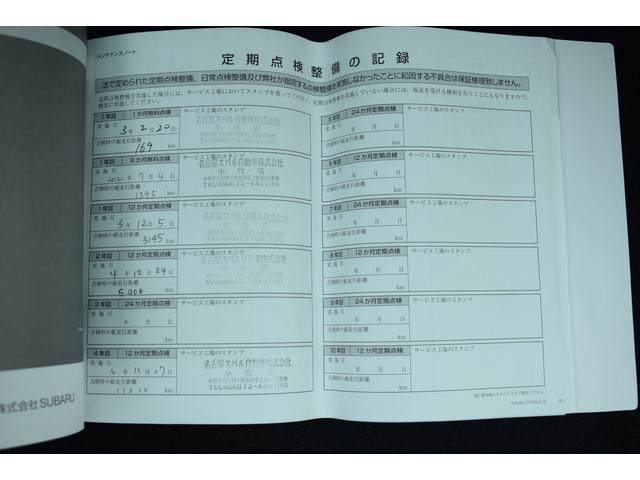 メンテナンスノート
定期点検整備の記録
法で定められた定期点検整備、日常点検整備及び弊社が指定する点検整備を実施しなかったことに起因する不具合は保証修理致しません。
定期点検整備を実施した場合には、サービス工場においてスタンプを貰ってください。定期点検整備を実施していない場合には、保証を受ける権利を失うことにもなりますので、
確実に実施してください。
1年目 1か月無料点検 サービス工場のスタンプ
実施日
3年 2月 20日
点検時の総走行距離
169 km
名古屋スバル自動車株式会社
小牧店
1年目 6か月無料点検 サービス工場のスタンプ
実施日
2021年 7月 4日
点検時の総走行距離
1395 km
名古屋スバル自動車株式会社
小牧店
TEL(0568)73-6811(代)
1年目 12か月定期点検 サービス工場のスタンプ
実施日
3年 12月 5日
点検時の総走行距離
3145 km
名古屋スバル自動車株式会社
小牧店
2年目 12か月定期点検 サービス工場のスタンプ
実施日
4年 12月 24日
点検時の総走行距離
km
名古屋スバル自動車株式会社
小牧店
3年目 24か月定期点検 サービス工場のスタンプ
実施日
年 月 日
点検時の総走行距離
km
4年目 12か月定期点検 サービス工場のスタンプ
実施日
点検時の総走行距離
km
名古屋スバル自動車株式会社
小牧店
TEL(0568)73-6811(代)
5年目 24か月定期点検 サービス工場のスタンプ
実施日
年 月 日
点検時の総走行距離
km
6年目 12か月定期点検 サービス工場のスタンプ
実施日
年 月 日
点検時の総走行距離
km
7年目 24か月定期点検 サービス工場のスタンプ
実施日
年 月 日
点検時の総走行距離
km
8年目 12か月定期点検 サービス工場のスタンプ
実施日
年 月 日
点検時の総走行距離
km
9年目 24か月定期点検 サービス工場のスタンプ
実施日
年 月 日
点検時の総走行距離
km
10年目 12か月定期点検 サービス工場のスタンプ
実施日
年 月 日
点検時の総走行距離
km
株式会社SUBARU